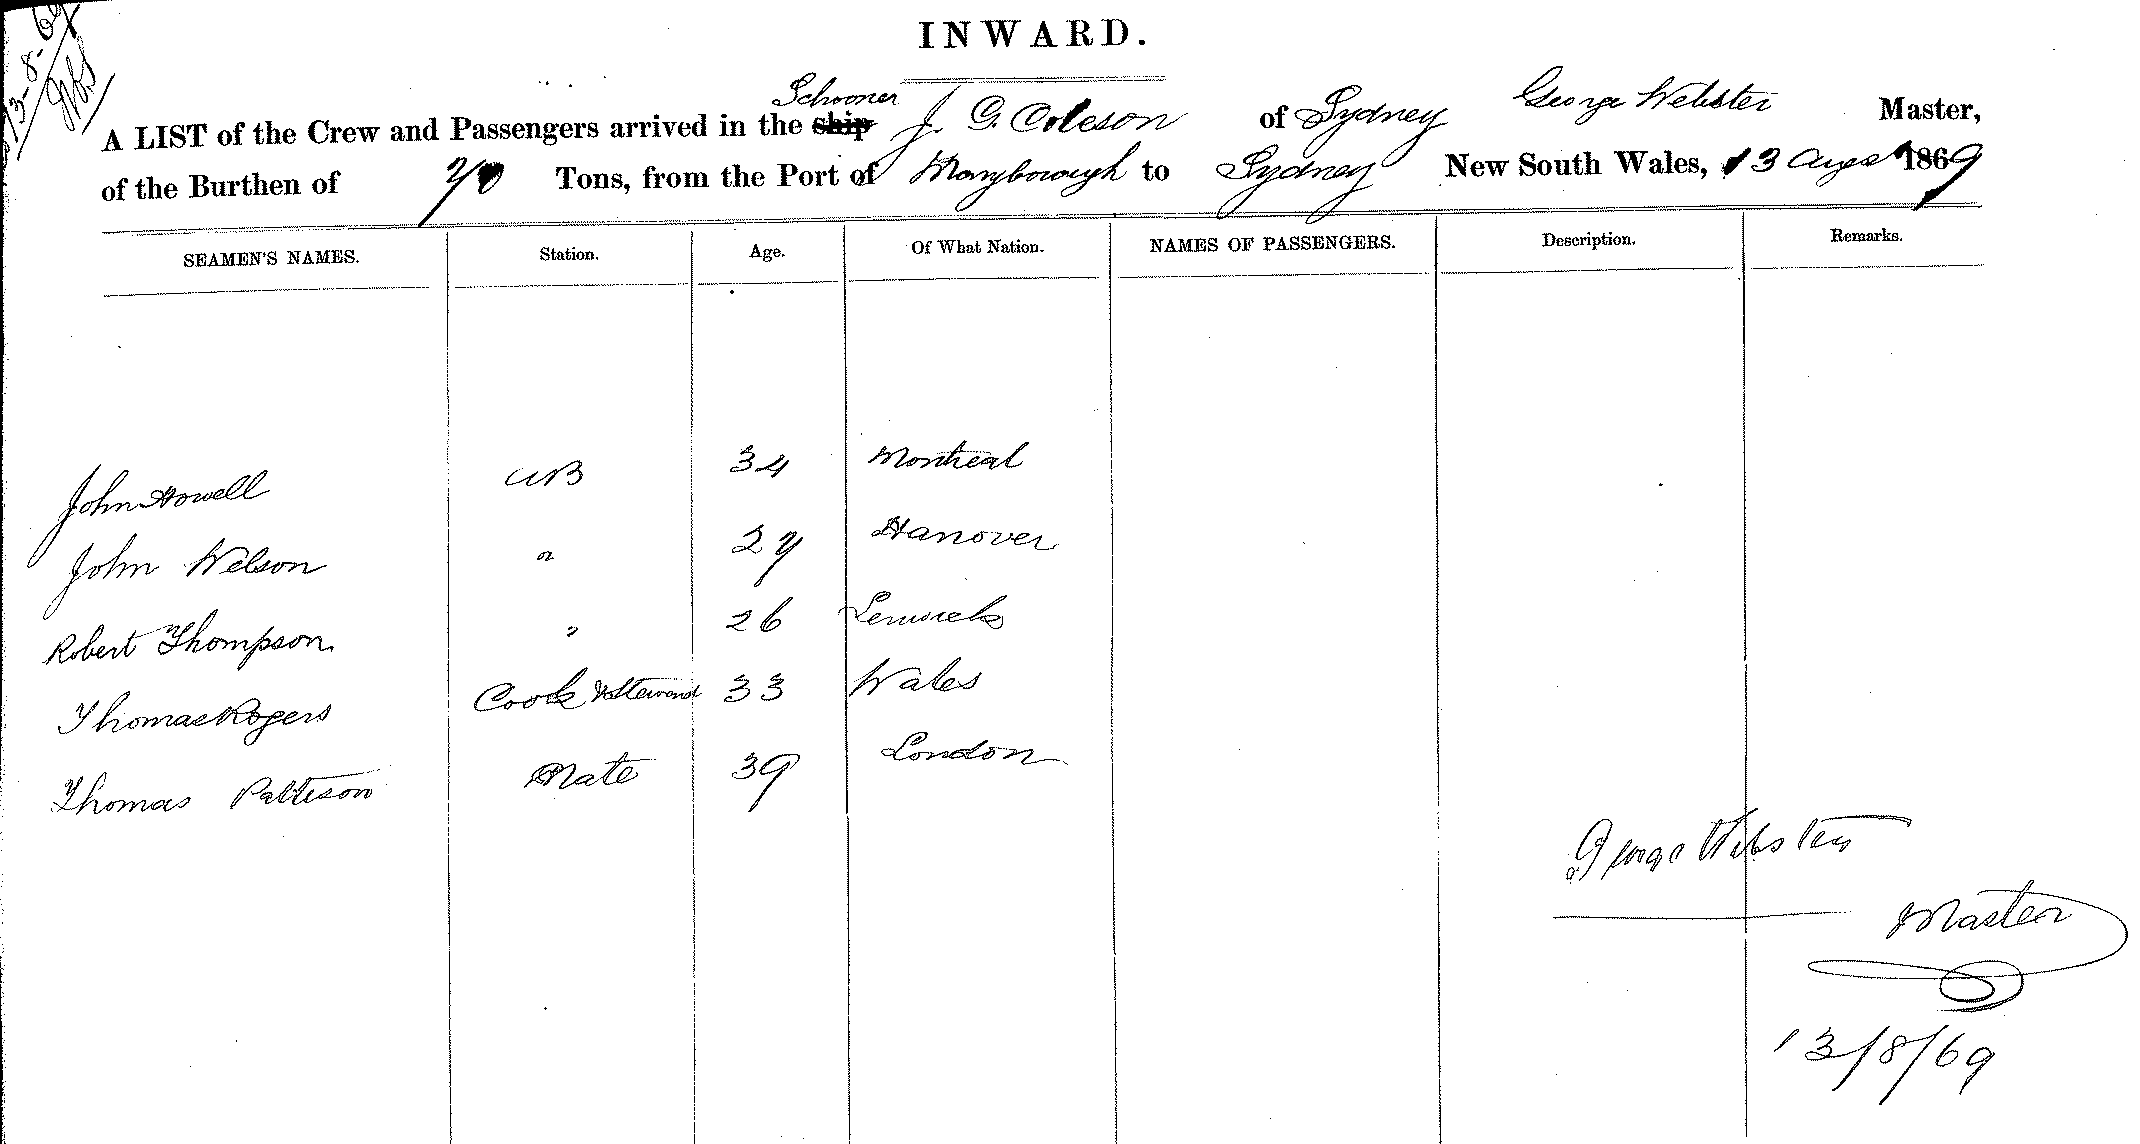 13-8-69
INWARD.
Schooner
A LIST of the Crew and Passengers arrived in the ship J. G. Coleson of Sydney George Webster Master,
of the Burthen of Tons, from the Port of Maryborough to Sydney New South Wales, 13 Augst 1869
SEAMEN'S NAMES. Station. Age. Of What Nation. NAMES OF PASSENGERS. Description. Remarks.
John Howell AB 34 Montreal
John Welson " 27 Hanover
Robert Thompson " 26 Lerwick
Thomas Rogers Cook & Steward 33 Wales
Thomas Patteson Mate 39 London
George Webster
Master
13/8/69